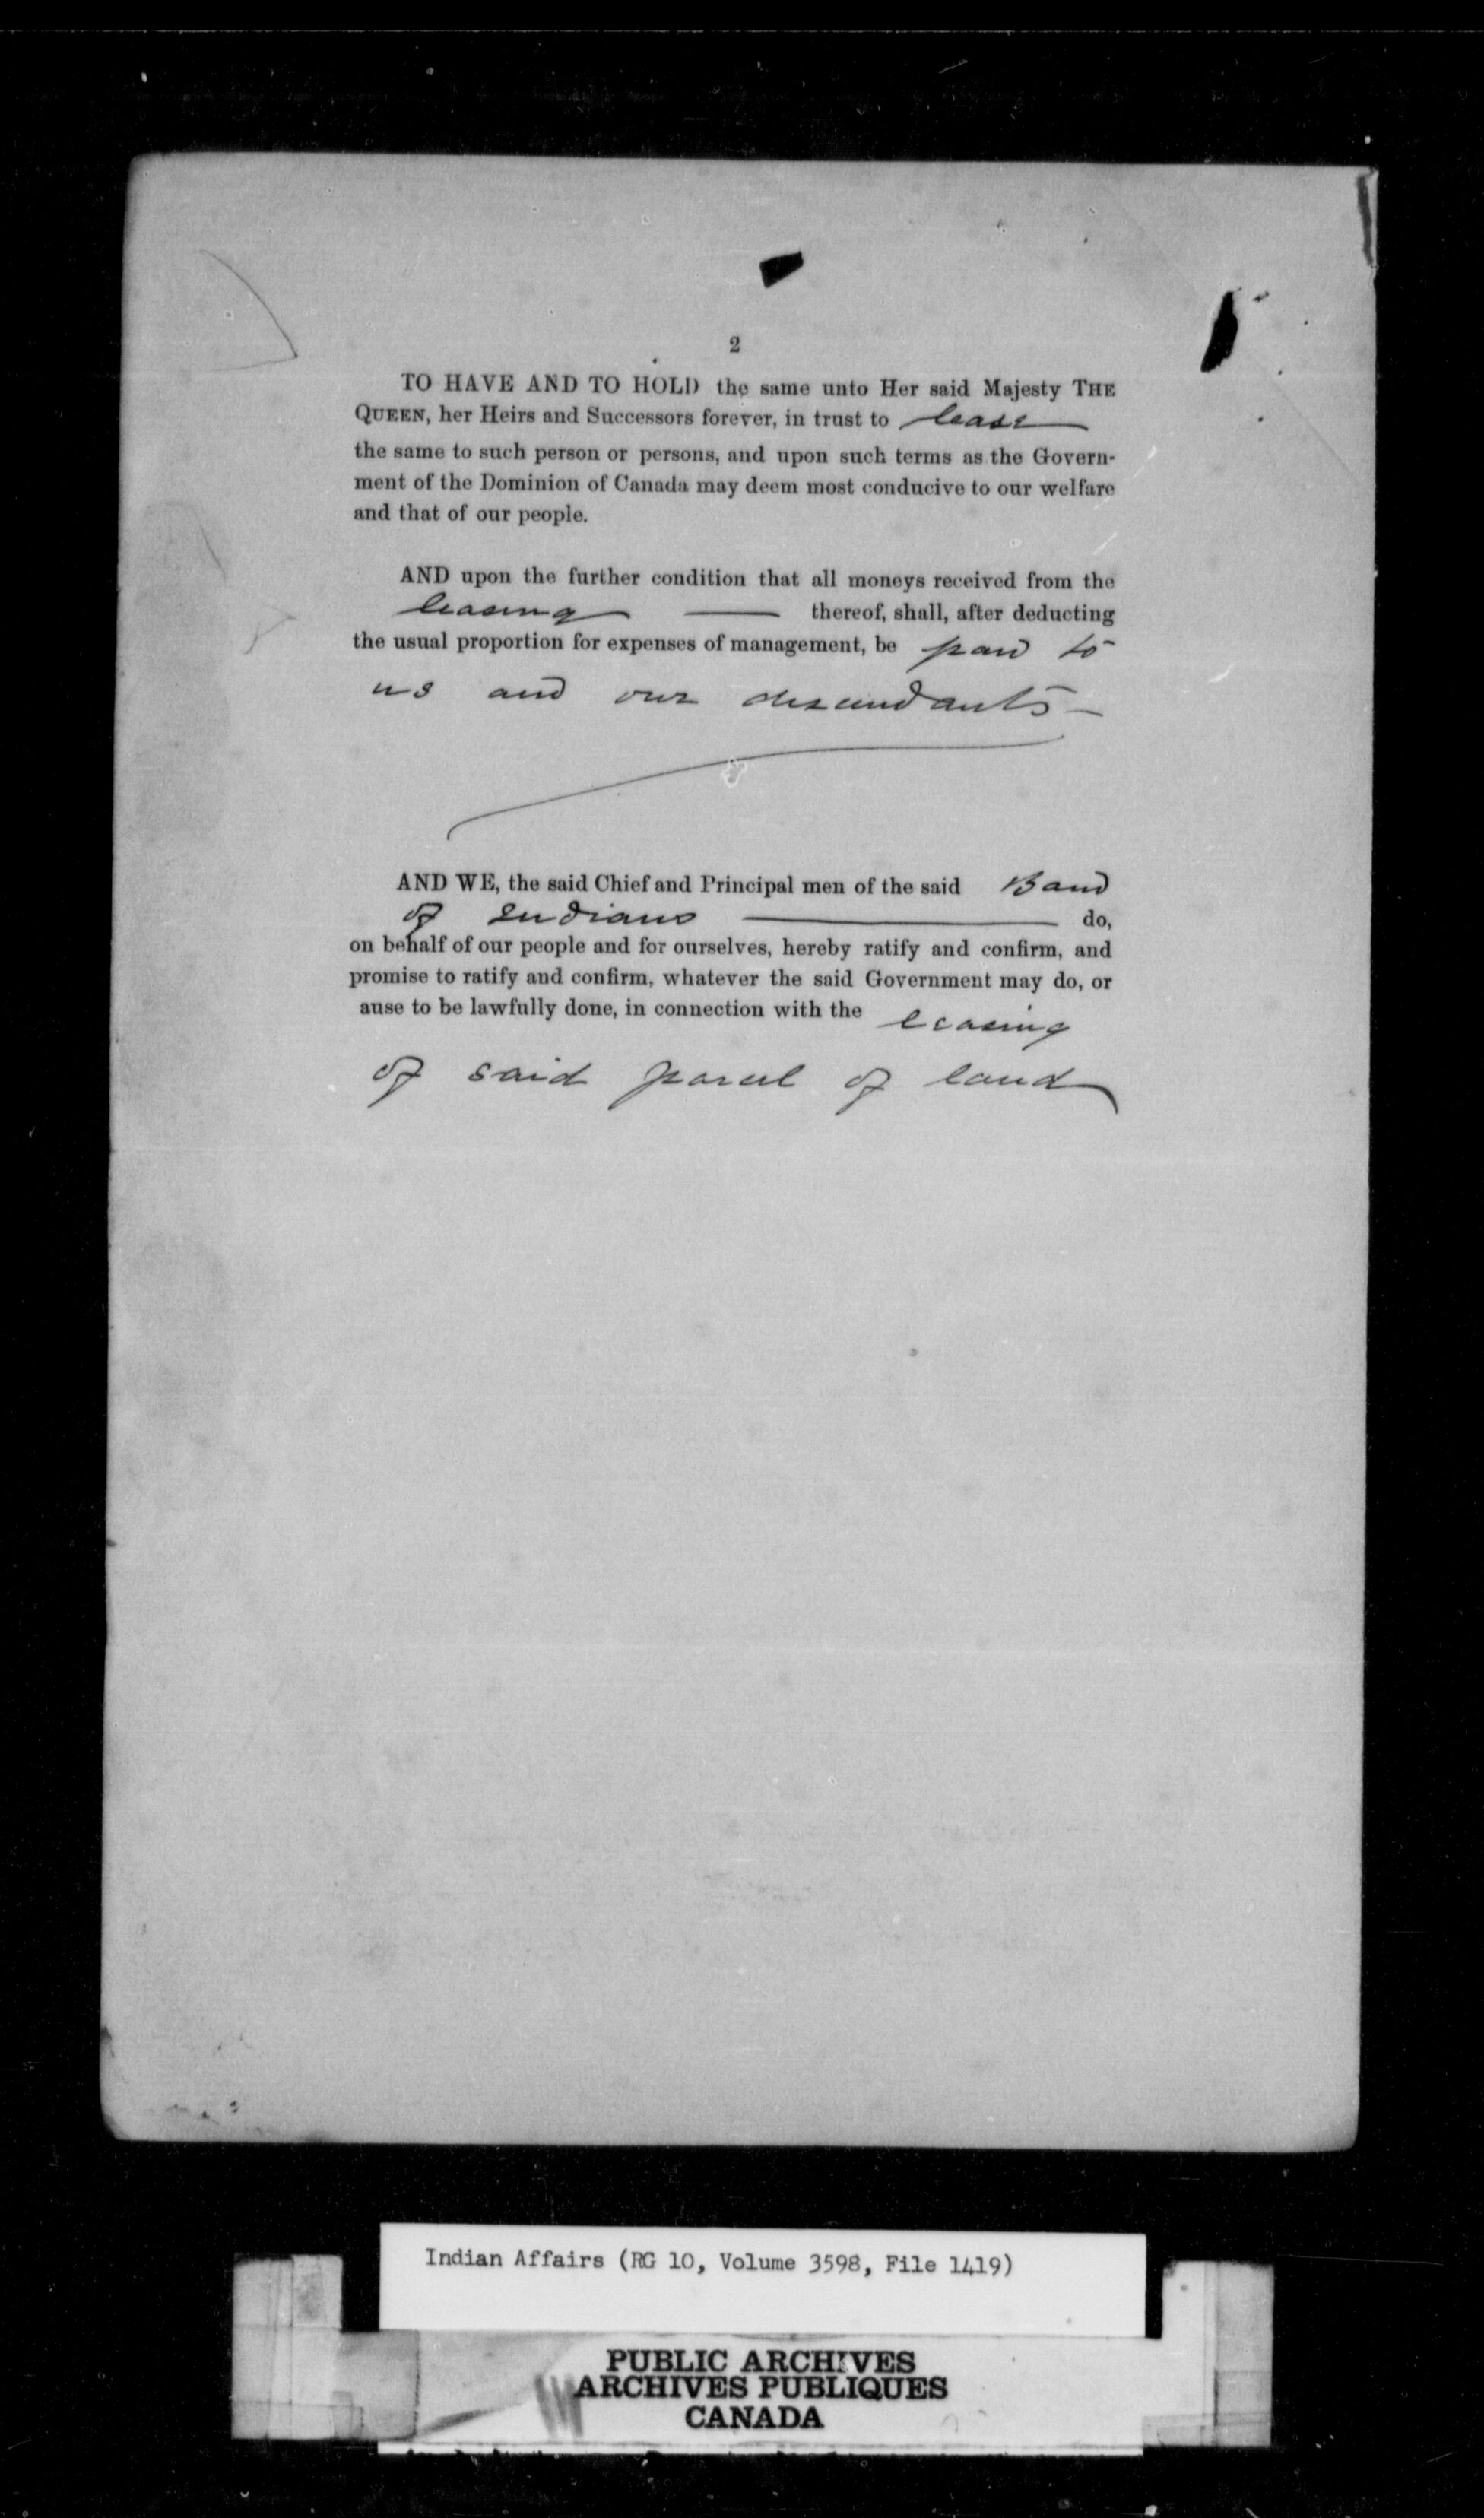 2
TO HAVE AND TO HOLD the same unto Her said Majesty THE
QUEEN, her Heirs and Successors forever, in trust to lease
the same to such person or persons, and upon such terms as the Govern-
ment of the Dominion of Canada may deem most conducive to our welfare
and that of our people.
AND upon the further condition that all moneys received from the
leasing — thereof, shall, after deducting
the usual proportion for expenses of management, be paid to
us and our descendants —
AND WE, the said Chief and Principal men of the said Band
of Indians — do,
on behalf of our people and for ourselves, hereby ratify and confirm, and
promise to ratify and confirm, whatever the said Government may do, or
ause to be lawfully done, in connection with the leasing
of said parcel of land
Indian Affairs (RG 10, Volume 3598, File 1419)
PUBLIC ARCHIVES
ARCHIVES PUBLIQUES
CANADA